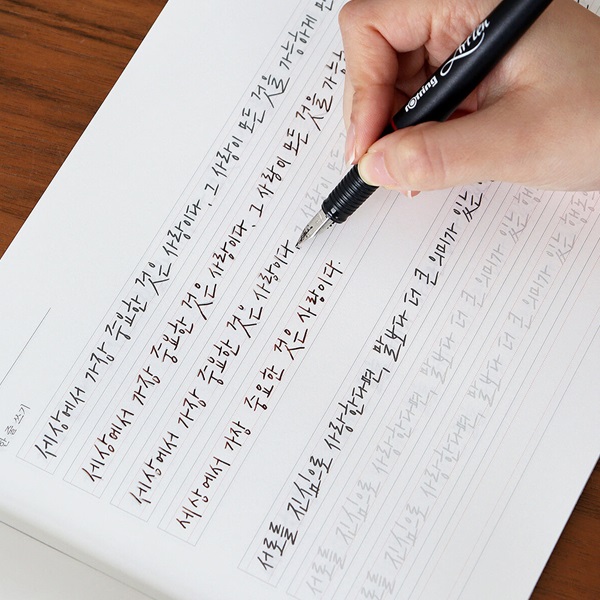 한 줄 쓰기
세상에서 가장 중요한 것은 사랑이다. 그 사랑이 모든 것을 가능하게
세상에서 가장 중요한 것은 사랑이다. 그 사랑이 모든 것을 가능
세상에서 가장 중요한 것은 사랑이다.
세상에서 가장 중요한 것은 사랑이다.
서로를 진심으로 사랑한다면, 말보다 더 큰 의미가 있는
서로를 진심으로 사랑한다면, 말보다 더 큰 의미가 있는 행동
서로를 진심으로 사랑한다면, 말보다 더 큰 의미가 있는 행
rotring